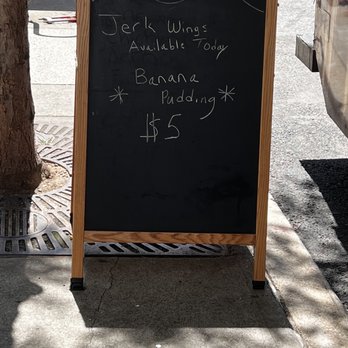 Jerk Wings
Available Today
Banana
* Pudding *
$5